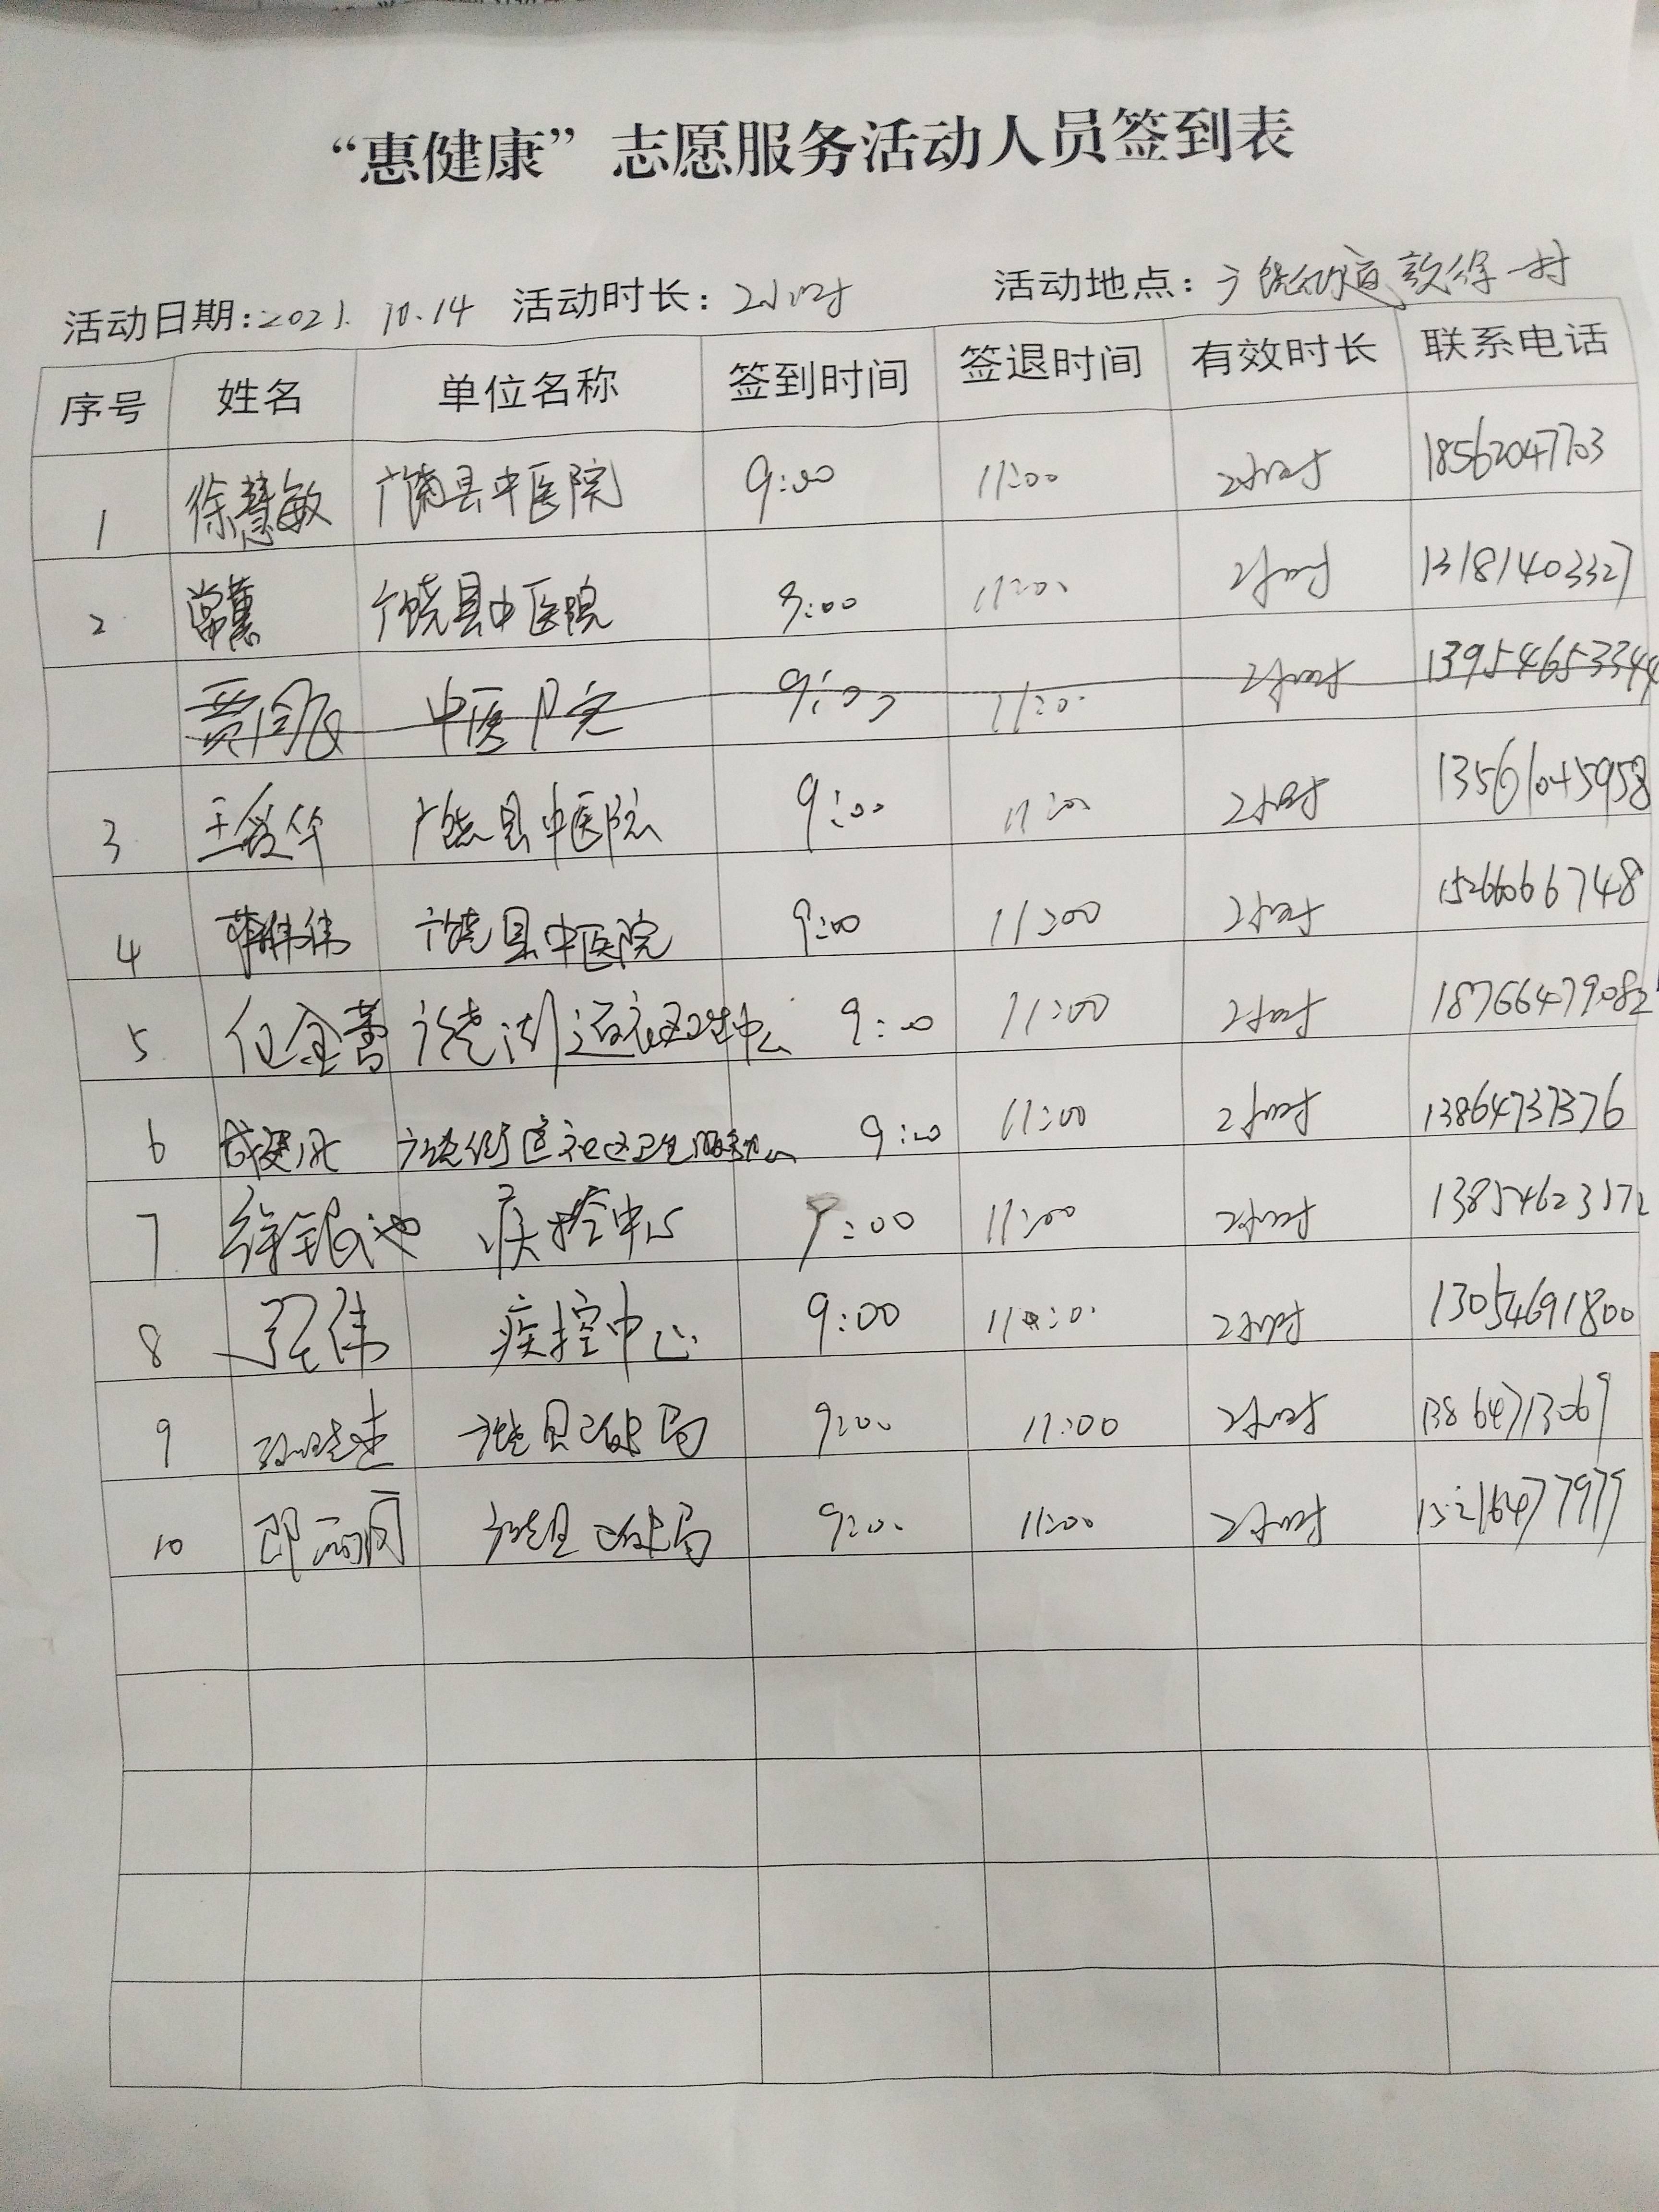 “惠健康”志愿服务活动人员签到表
活动日期:2021.10.14 活动时长:2小时 活动地点:广饶街道 一村
序号 姓名 单位名称 签到时间 签退时间 有效时长 联系电话
1 徐慧敏 广饶县中医院 9:00 11:00 2小时 18562047703
2 常蕙 广饶县中医院 9:00 11:00 2小时 13181403327
中医院 9:00 11:00 2小时 13954653344
3 王爱华 广饶县中医院 9:00 11:00 2小时 13561045958
4 广饶县中医院 9:00 11:00 2小时 15266066748
5 任金蕾 广饶街道社区卫生中心 9:00 11:00 2小时 18766479082
6 广饶街道社区卫生服务中心 9:00 11:00 2小时 13864737376
7 徐银池 疾控中心 9:00 11:00 2小时 13854623572
8 伟 疾控中心 9:00 11:00 2小时 13054691800
9 广饶县 局 9:00 11:00 2小时 13864713069
10 广饶县 局 9:00 11:00 2小时 15216477979